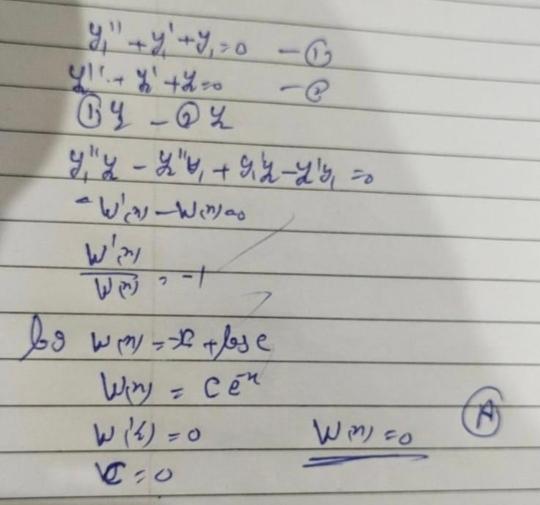 y₁'' + y₁' + y₁ = 0 — ①
y₂'' + y₂' + y₂ = 0 — ②
① y₂ — ② y₁
y₁''y₂ - y₂''y₁ + y₁'y₂ - y₂'y₁ = 0
- W'(x) - W(x) = 0
W'(x) / W(x) = -1
log W(x) = -x + log c
W(x) = C e⁻ˣ
W(½) = 0 W(x) = 0 Ⓐ
C = 0